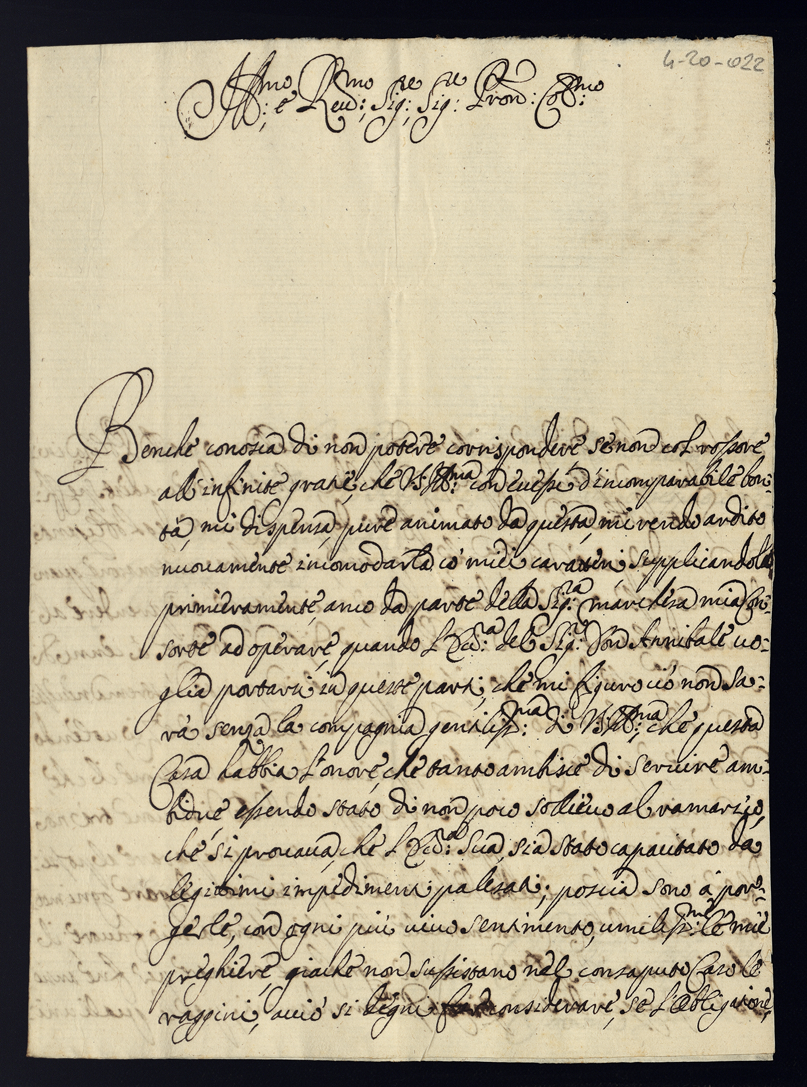 4-20-022
Ill:mo e Reu:mo Sig:re Sig:re Pron: Col:mo
Benche conosca di non potere corrispondere se non col rossore
all'infinite grazie, che V.S. Ill:ma con eccessi d'incomparabile bon-
tà, mi dispensa, pure animato da questa, mi rendo ardito
nuouamente incomodarla co' miei caratteri, supplicandola
primieramente, anco da parte della Sig:ra Marchesa mia Con-
sorte ad operare, quando l'Ecc:a del Sig:r Don Annibale uo-
glia portarsi in queste parti, che mi figuro ciò non sa-
rà senza la compagnia gentiliss:ma di V.S. Ill:ma, che questa
Casa habbia l'onore, che tanto ambisce di seruire am-
bidue essendo stato di non poco sollieuo al ramarico,
che si prouaua, che l'Ecc:a Sua, sia stato capacitato da
legitimi impedimenti palesati; poscia sono à por-
gerle, con ogni più uiuo sentimento, umiliss:me le mie
preghiere, giache non sussistano nel consaputo Caso le
raggini, acciò si degni considerare, se l'obligatione,